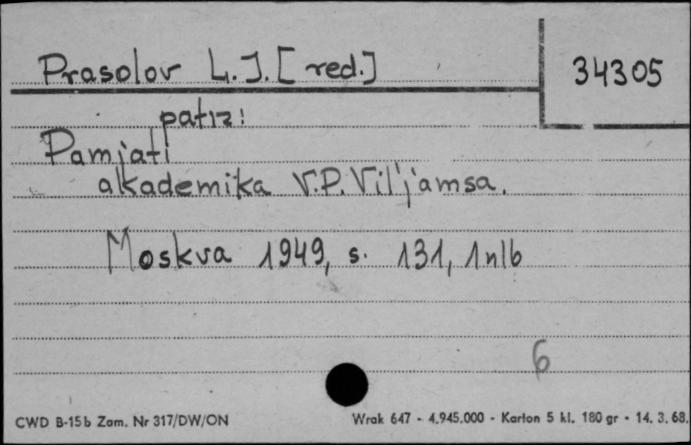 Prasolov L.I. [red.]
34305
patrz:
Pamjati
akademika V.P. Vil'jamsa.
Moskva 1949, s. 131, 1 nlb
6
CWD B-15b Zam. Nr 317/DW/ON
Wrak 647 - 4.945.000 - Karton 5 kl. 180 gr - 14. 3. 68.